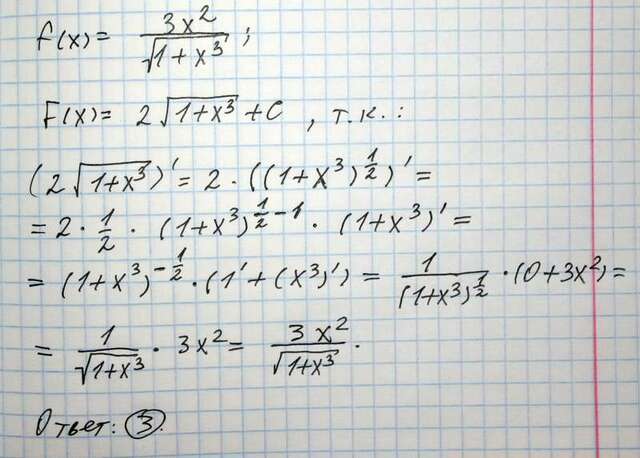 f(x) = 3x²/√(1+x³);
F(x) = 2√(1+x³) + C, т.к.:
(2√(1+x³))' = 2 · ((1+x³)^(1/2))' =
= 2 · 1/2 · (1+x³)^(1/2 - 1) · (1+x³)' =
= (1+x³)^(-1/2) · (1' + (x³)') = 1/(1+x³)^(1/2) · (0+3x²) =
= 1/√(1+x³) · 3x² = 3x²/√(1+x³).
Ответ: 3.